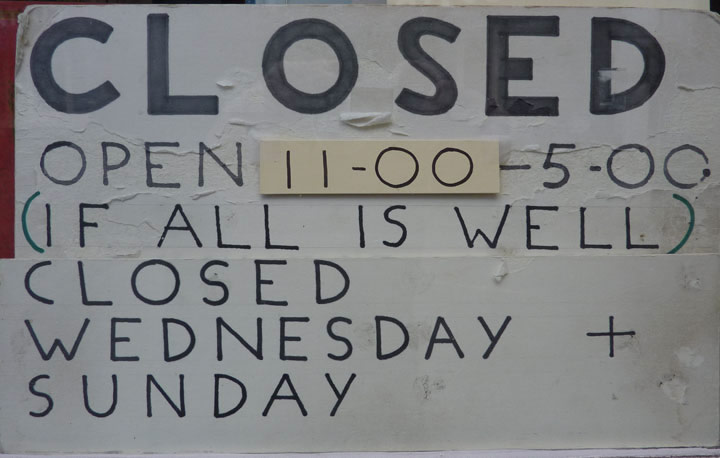 CLOSED
OPEN 11-00-5-00
(IF ALL IS WELL)
CLOSED
WEDNESDAY +
SUNDAY